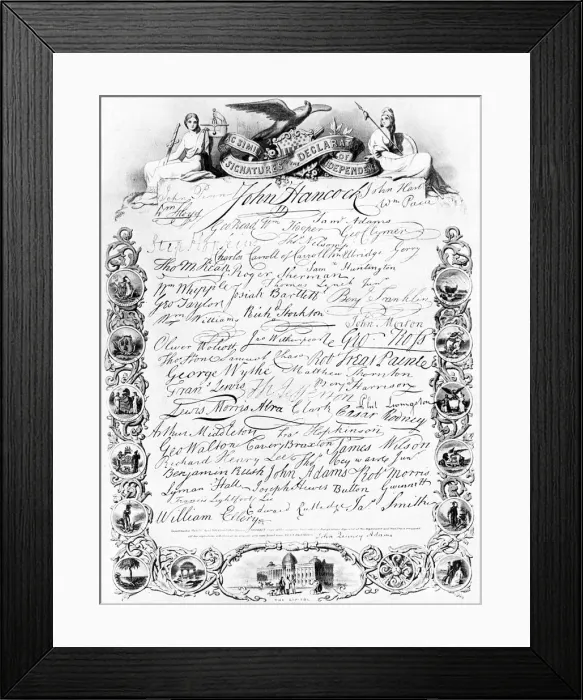 SIGNATURES DECLARA
OF INDEPENDEN
John Hancock
John Hart
Wm Paca
Geo Read Wm Hooper
Samˡ Adams
Geo Clymer
Thoˢ Nelson jr
Charles Carroll of Carrollton
Gerry
Tho M:Kean Roger Sherman
Samˡ Huntington
Wm Whipple
Thomas Lynch Junr
Geo Taylor Josiah Bartlett
Benj Franklin
Wm Williams Richd Stockton
John Morton
Oliver Wolcott
Geo Ross
Samuel Chase Robt Treat Paine
George Wythe Matthew Thornton
Franˢ Lewis
Benj Harrison
Lewis Morris Abra Clark Cæsar Rodney
Phil Livingston
Arthur Middleton Fraˢ Hopkinson
Geo Walton Carter Braxton James Wilson
Richard Henry Lee Thoˢ Heyward Junr
Benjamin Rush John Adams Robt Morris
Lyman Hall Joseph Hewes Button Gwinnett
Francis Lightfoot Lee
Edward Rutledge Jaˢ Smith
William Ellery
John Quincy Adams
THE CAPITOL